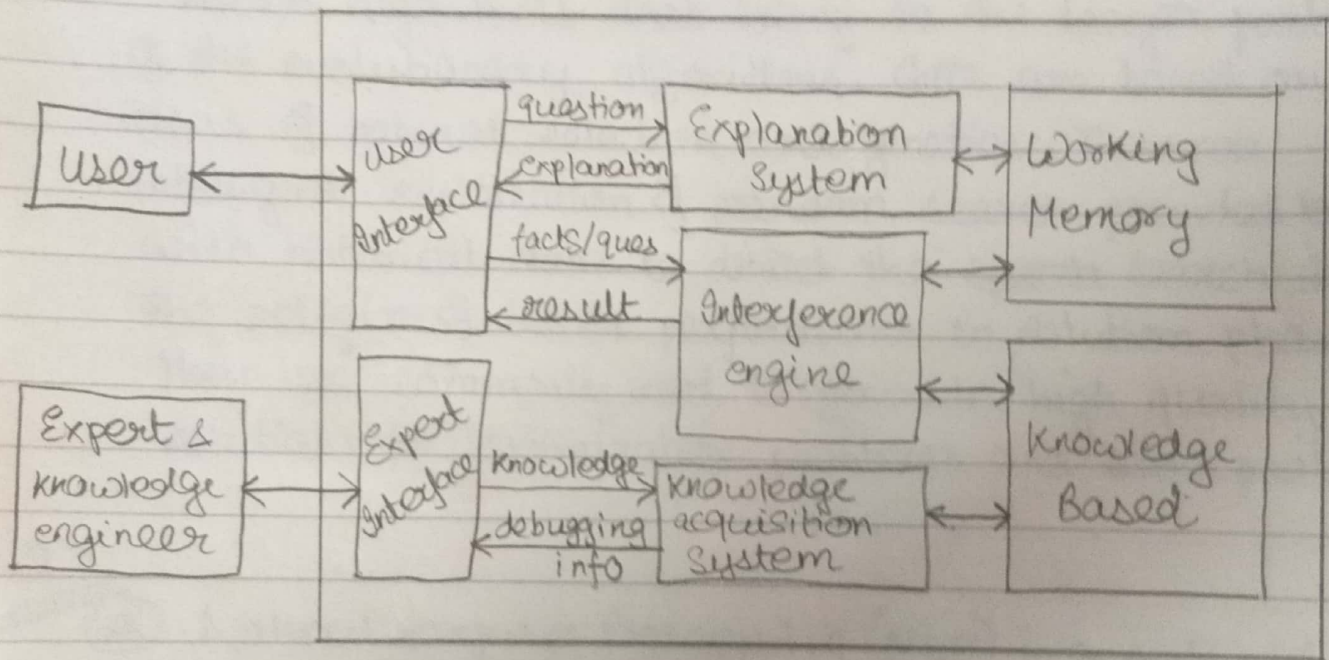 User
User
Interface
question
explanation
facts/ques
result
Explanation
System
Working
Memory
Interference
engine
Expert &
knowledge
engineer
Expert
Interface
knowledge
debugging
info
knowledge
acquisition
System
knowledge
Based